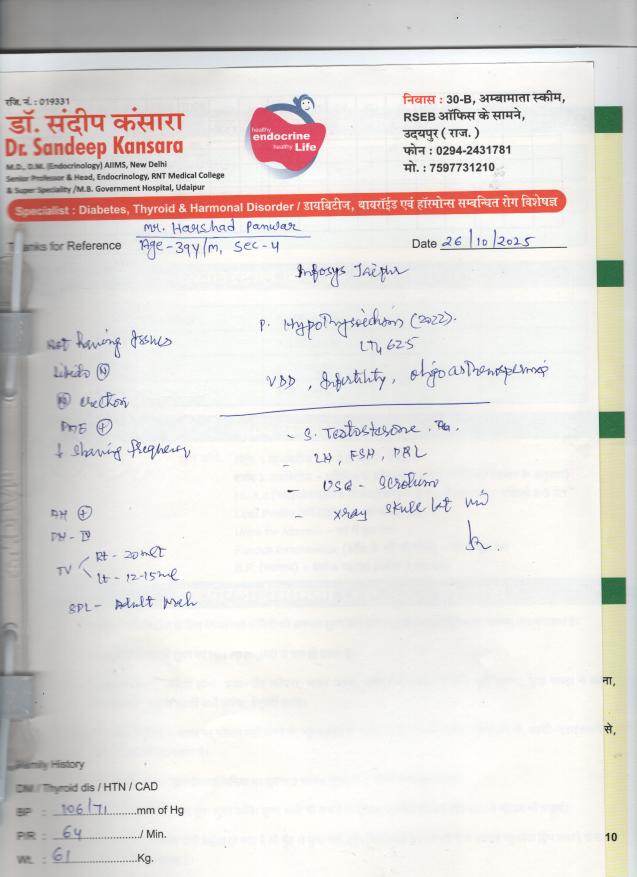 रजि. नं. : 019331
डॉ. संदीप कंसारा
Dr. Sandeep Kansara
M.D., D.M. (Endocrinology) AIIMS, New Delhi
Senior Professor & Head, Endocrinology, RNT Medical College
& Super Speciality /M.B. Government Hospital, Udaipur
healthy
endocrine
healthy Life
निवास : 30-B, अम्बामाता स्कीम,
RSEB ऑफिस के सामने,
उदयपुर ( राज. )
फोन : 0294-2431781
मो. : 7597731210
Specialist : Diabetes, Thyroid & Harmonal Disorder / डायबिटीज, थायरॉईड एवं हॉरमोन्स सम्बन्धित रोग विशेषज्ञ
Mr. Harshad Panwar
Thanks for Reference Age-39y/m, Sec-4 Date 26/10/2025
Infosys Jaipur
P. Hypothyroidism (2022).
LT4 625
VDD, Infertility, oligoasthenospermia
Not having Issues
Libido (N)
(N) erection
PME (+)
↓ Shaving frequency
AH (+)
PH - IV
TV Rt - 20ml
Lt - 12-15ml
SPL - Adult
- S. Testosterone
- LH, FSH, PRL
- USG - Scrotum
- Xray Skull
ना,
से,
Family History
DM / Thyroid dis / HTN / CAD
BP : 106/71 mm of Hg
P/R : 64 / Min.
Wt. : 61 Kg.
10